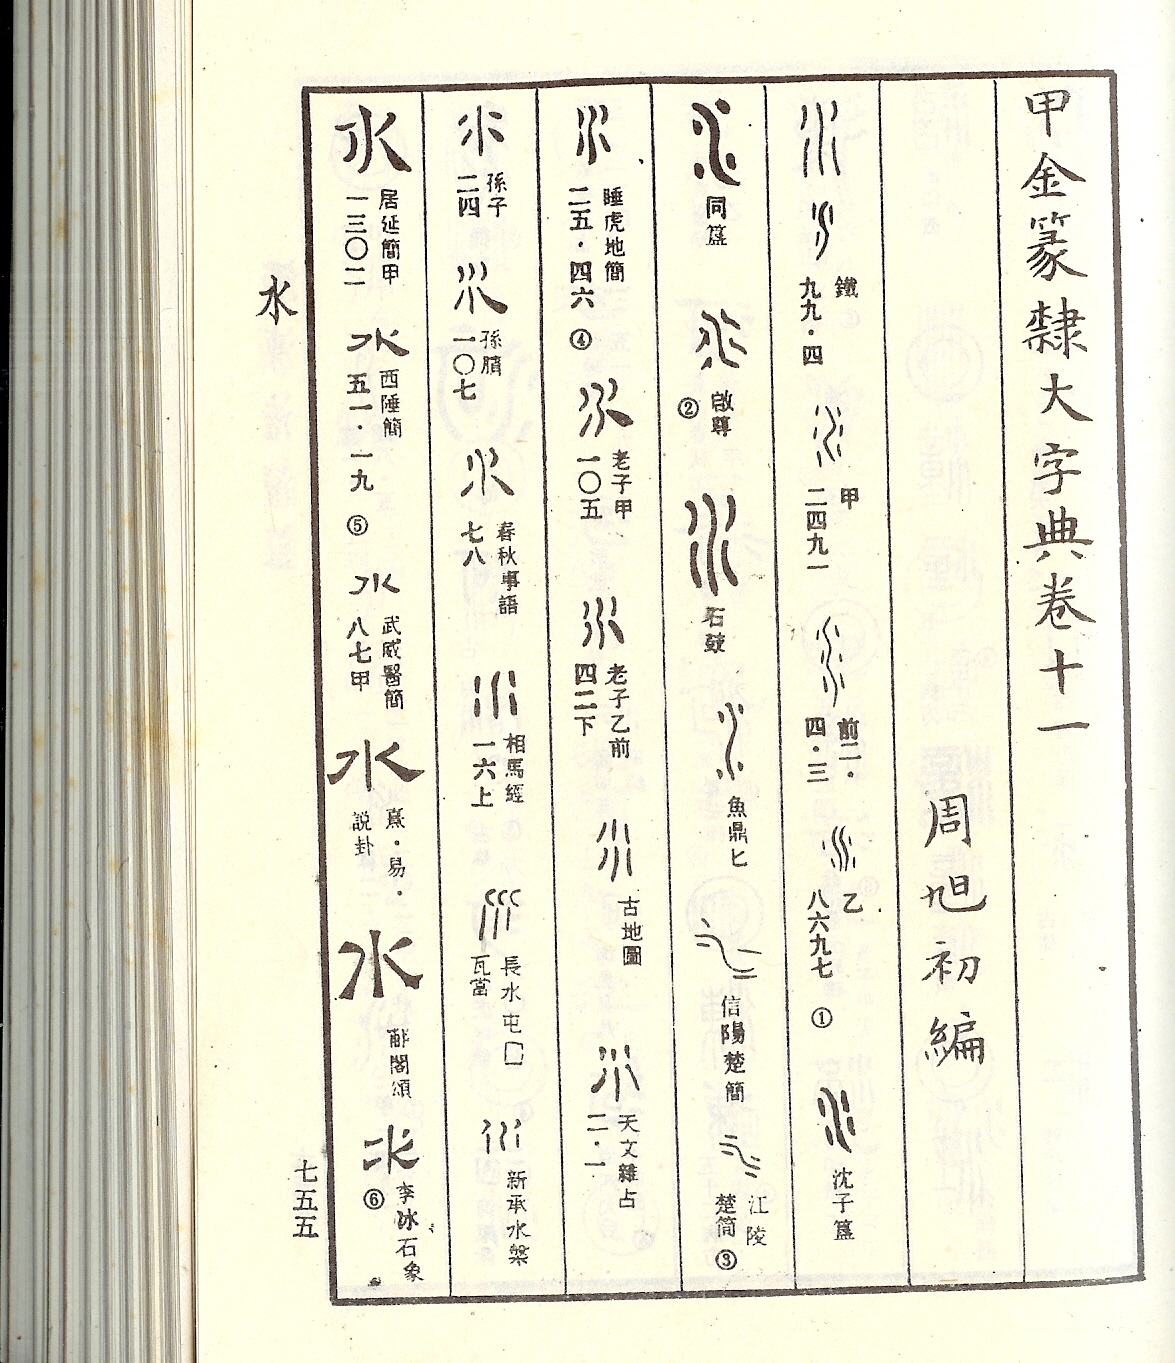 甲金篆隸大字典卷十一
周旭初編
水 水 鐵九九·四 水 甲二四九一 水 前二·四·三 水 乙八六九七 ① 水 沈子簋
水 同簋 水 啟尊 ② 水 石鼓 水 魚鼎匕 水 信陽楚簡 水 江陵楚简 ③
水 睡虎地簡二五·四六 ④ 水 老子甲一〇五 水 老子乙前四二下 水 古地圖 水 天文雜占二·一
水 孫子二四 水 孫臏一〇七 水 春秋事語七八 水 相馬經一六上 水 長水屯囗瓦當 水 新承水槃
水 居延簡甲一三〇二 水 西陲簡五一·一九 ⑤ 水 武威醫簡八七甲 水 熹·易·説卦 水 郙閣頌 水 李冰石象 ⑥
水
七五五